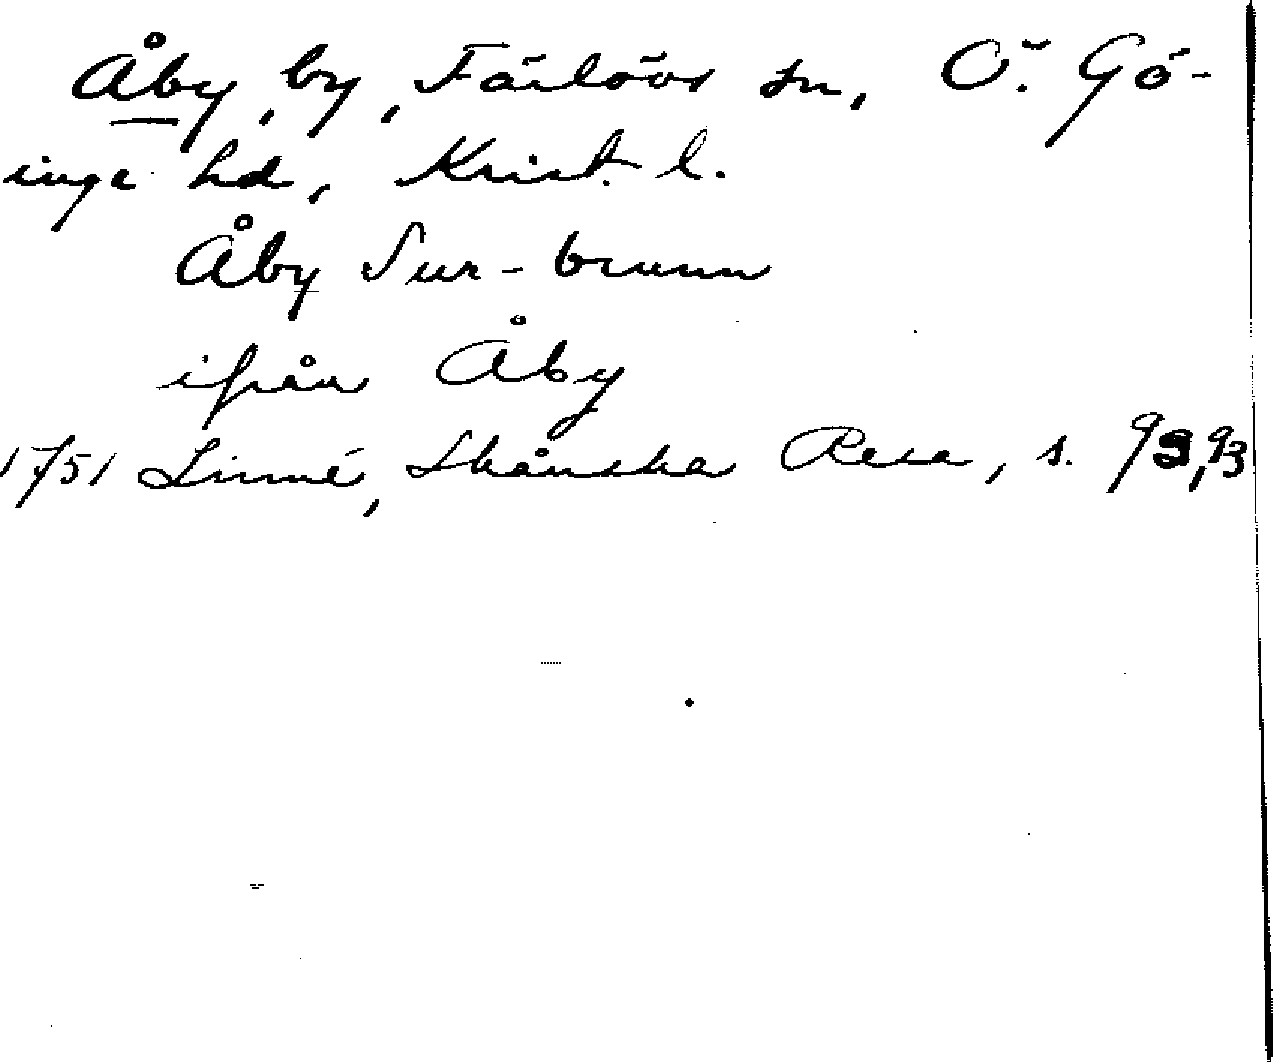 Åby, by, Färlövs sn, Ö. Gö-
inge hd, Krist. l.
Åby Sur-brunn
ifrån Åby
1751 Linné, Skånska Resa, s. 93